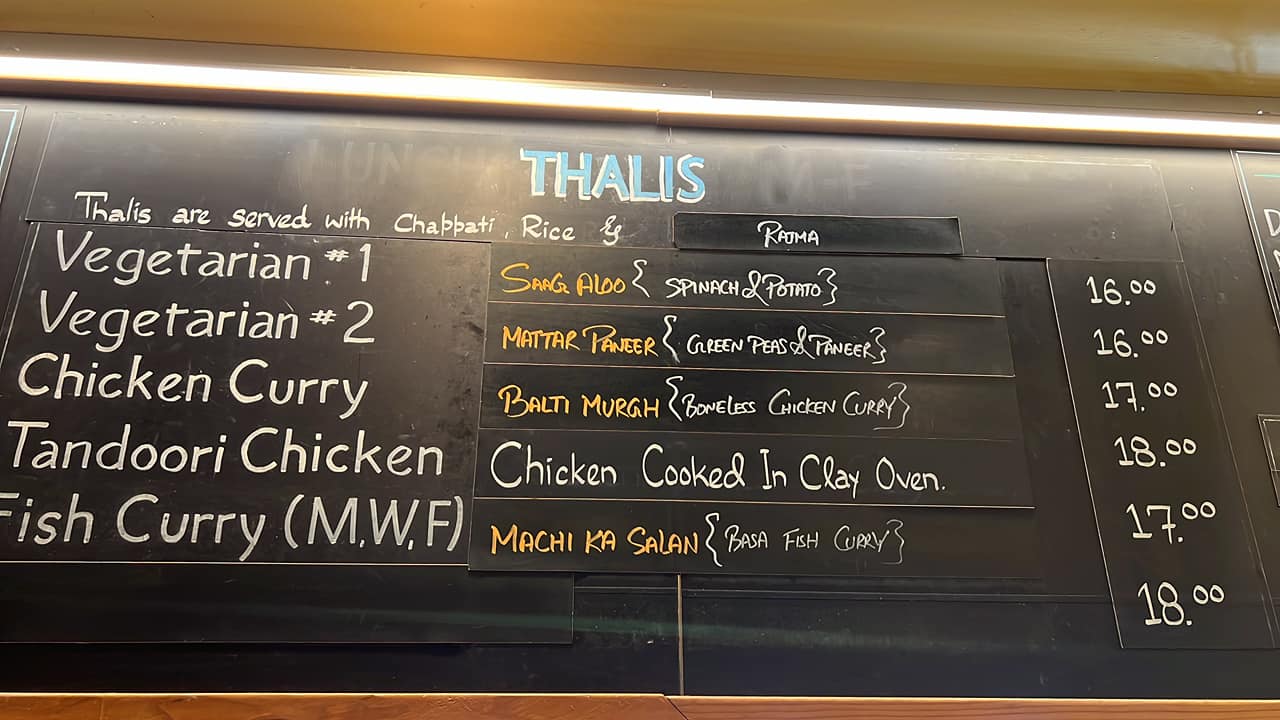 THALIS
Thalis are served with Chappati, Rice & RAJMA
Vegetarian #1 SAAG ALOO { SPINACH & POTATO } 16.00
Vegetarian #2 MATTAR PANEER { GREEN PEAS & PANEER } 16.00
Chicken Curry BALTI MURGH { BONELESS CHICKEN CURRY } 17.00
Tandoori Chicken Chicken Cooked In Clay Oven. 18.00
Fish Curry (M,W,F) MACHI KA SALAN { BASA FISH CURRY } 17.00
18.00